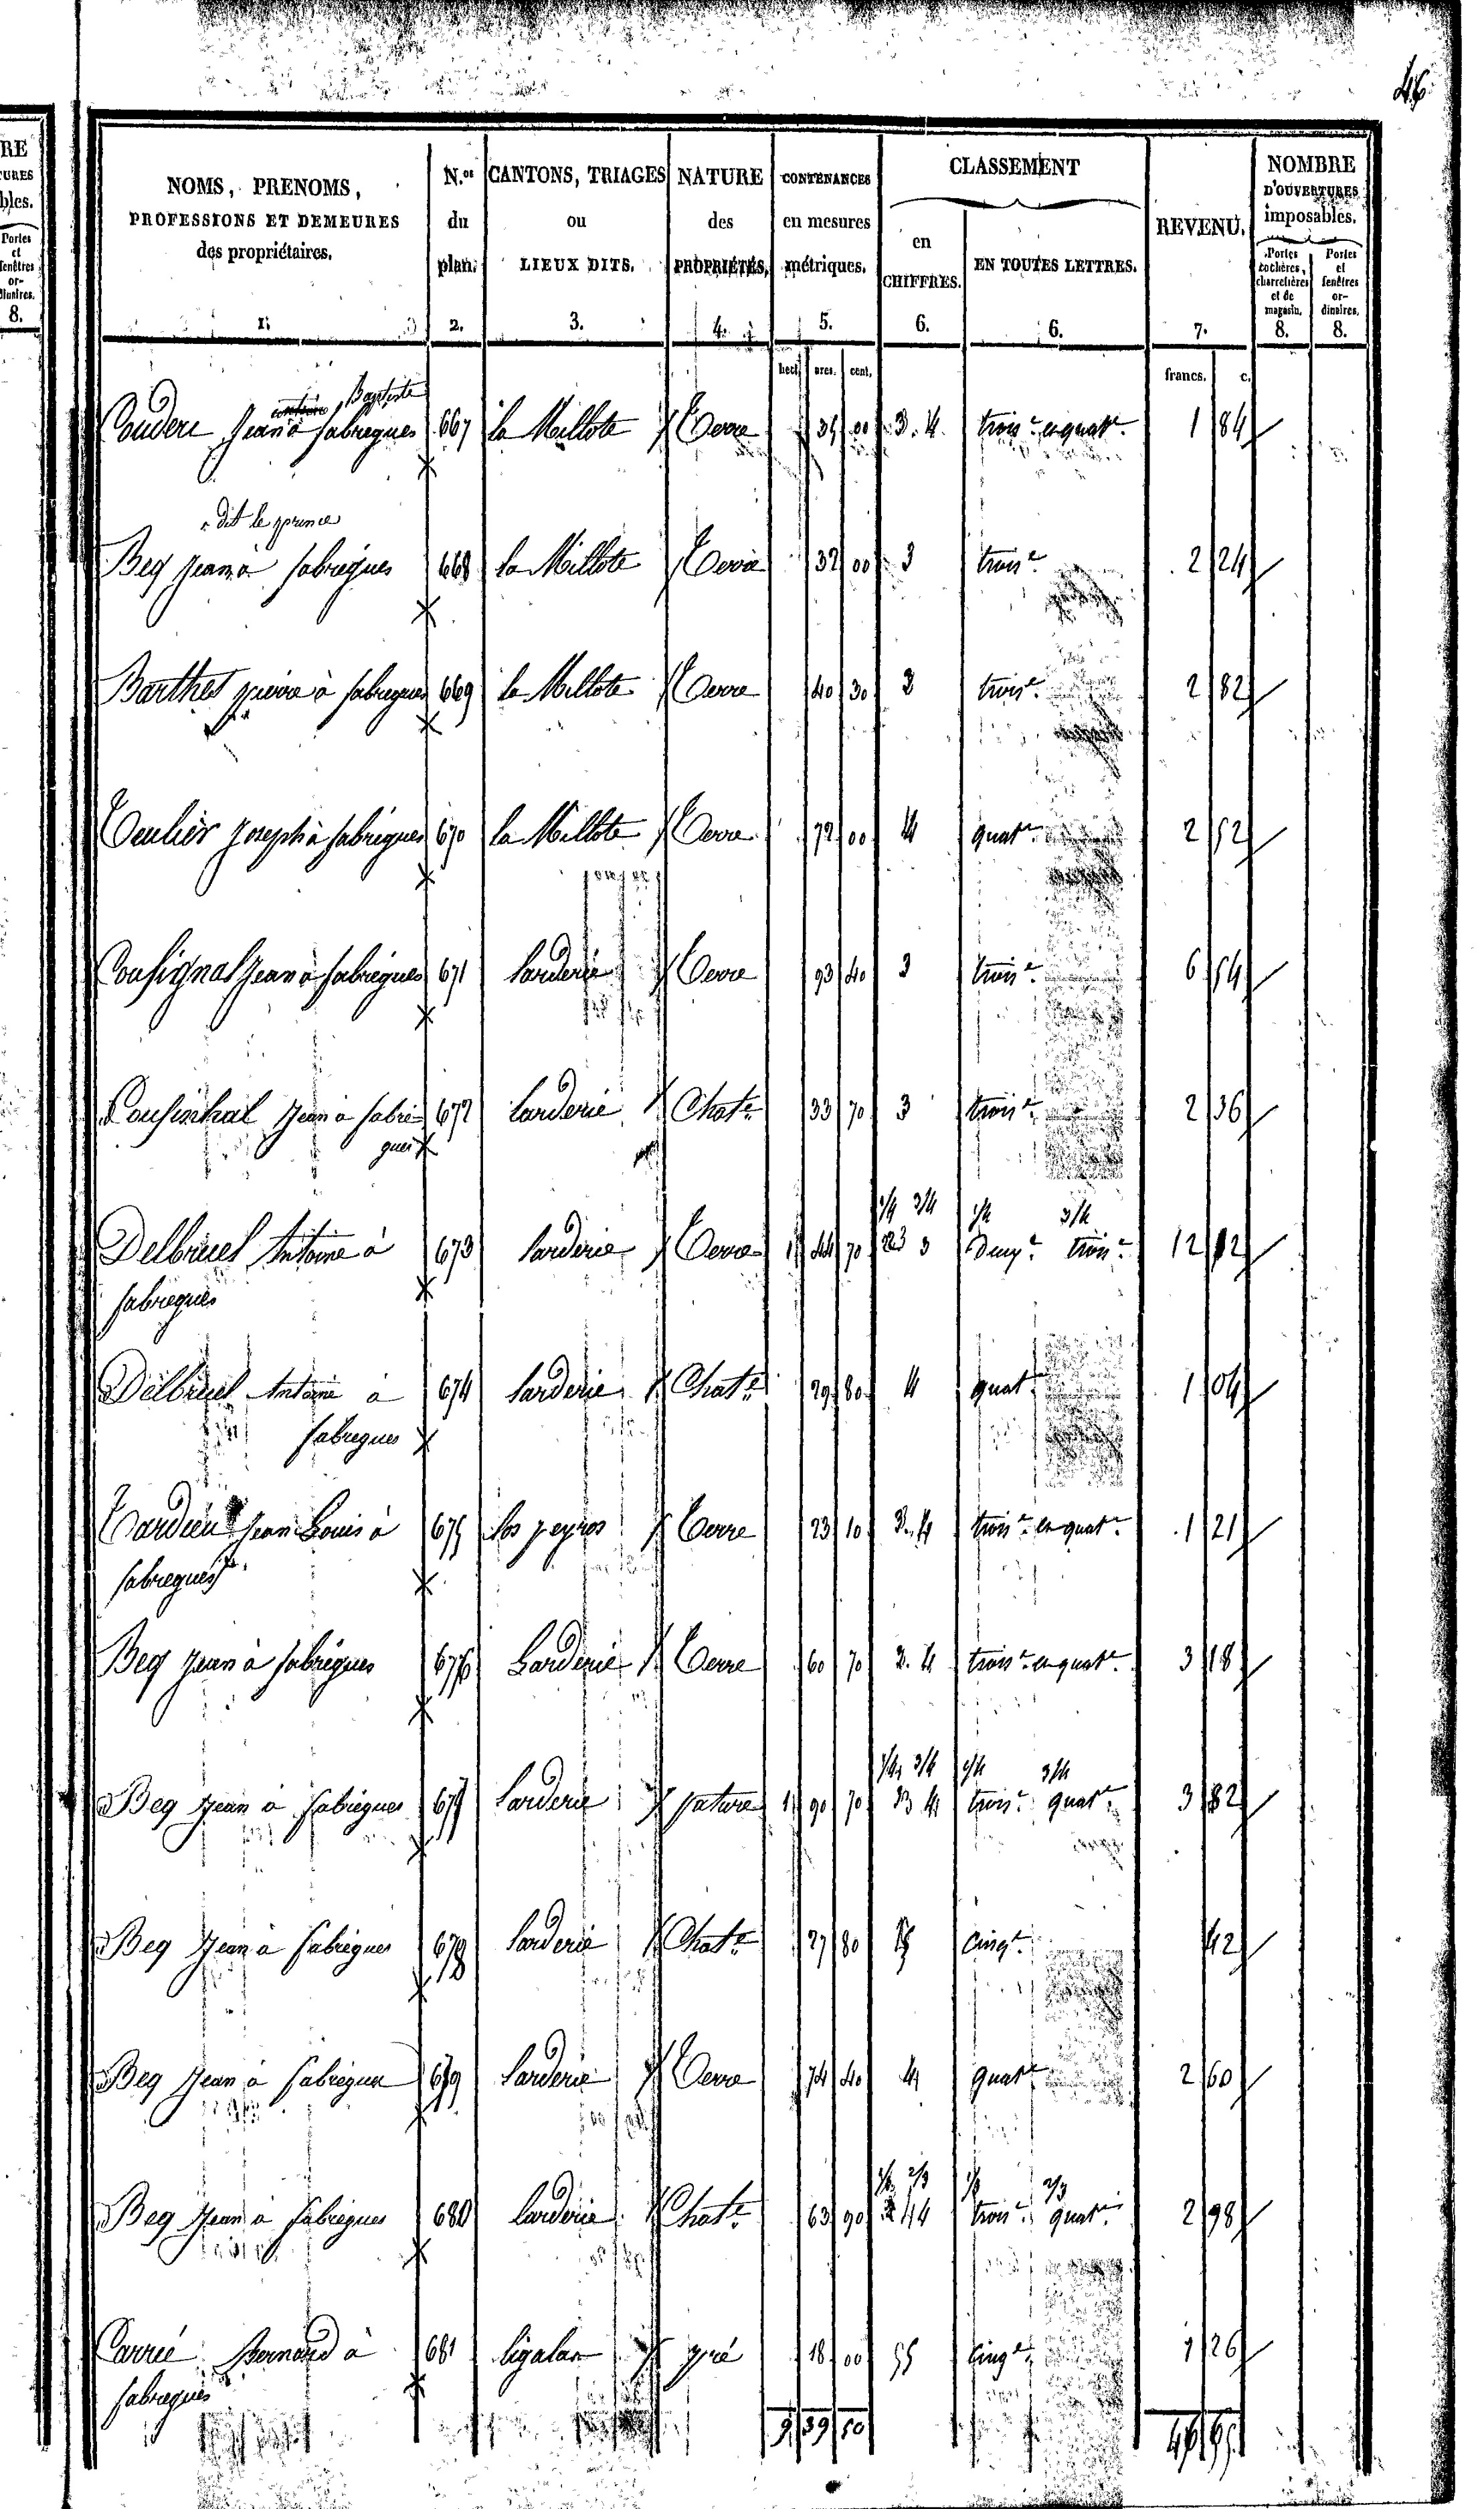 46
RE
TURES
bles.
Portes
et
fenêtres
or-
dinaires.
8.
NOMS, PRENOMS,
PROFESSIONS ET DEMEURES
des propriétaires.
1.
N.os
du
plan.
2.
CANTONS, TRIAGES
ou
LIEUX DITS.
3.
NATURE
des
PROPRIÉTÉS.
4.
CONTENANCES
en mesures
métriques.
5.
CLASSEMENT
en
CHIFFRES.
6.
EN TOUTES LETTRES.
6.
REVENU.
7.
NOMBRE
D'OUVERTURES
imposables.
Portes
cochères,
charretières
et de
magasin.
8.
Portes
et
fenêtres
or-
dinaires.
8.
hect. ares. cent. francs. c.
Baptiste
Couderc Jean à fabregues 667 la Millote Terre 35 00 3. 4. trois.e et quat.e 1 84
dit le prince
Beq Jean à fabregues 668 la Millote Terre 32 00 3 trois.e 2 24
Barthes pierre à fabregues 669 la Millote Terre 40 30 3 trois.e 2 82
Teulier Joseph à fabregues 670 la Millote Terre 72 00 4 quat.e 2 52
Jean à fabregues 671 larderie Terre 93 40 3 trois.e 6 54
Cousinhal Jean à fabre 672 larderie Chat.e 33 70 3 trois.e 2 36
gues
1/4 3/4 1/4 3/4
Delbruel Antoine à 673 larderie Terre 1 44 70 2 3 deux.e trois.e 12
fabregues
Delbruel Antoine à 674 larderie Chat.e 29 80 4 quat.e 1 04
fabregues
Tardieu Jean Louis à 675 los peyros Terre 23 10 3. 4 trois.e et quat.e 1 21
fabregues
Beq Jean à fabregues 676 Larderie Terre 60 70 3. 4 trois.e et quat.e 3 18
1/4 3/4 1/4 3/4
Beq Jean à fabregues 677 larderie pature 1 90 70 3 4 trois.e quat.e 3 82
Beq Jean à fabregues 678 larderie Chat.e 27 80 5 cinq.e 42
Beq Jean à fabregues 679 larderie Terre 74 40 4 quat.e 2 60
2/3 2/3
Beq Jean à fabregues 680 larderie Chat.e 63 90 trois.e quat.e 2 98
Carrié Bernard à 681 ligalar pré 18 00 5 cinq.e 1 26
fabregues
9 39 50